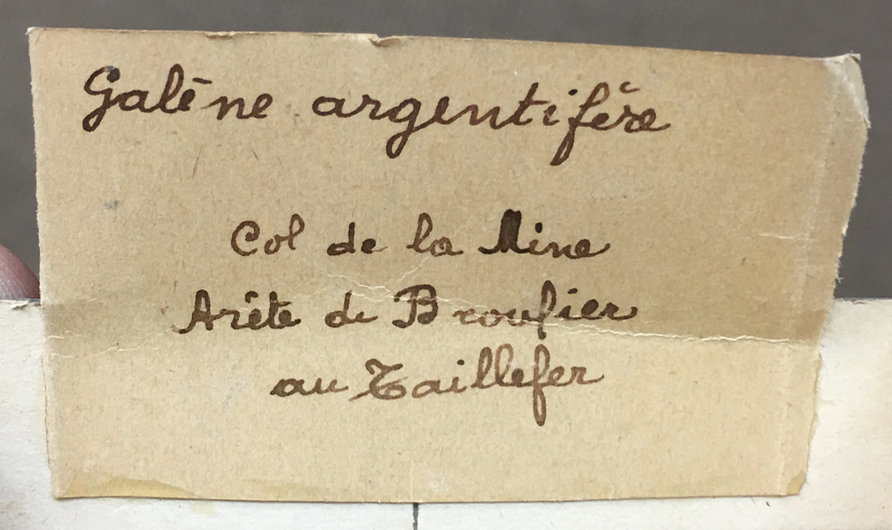 Galène argentifère
Col de la Mine
Arête de Brouffier
au Taillefer